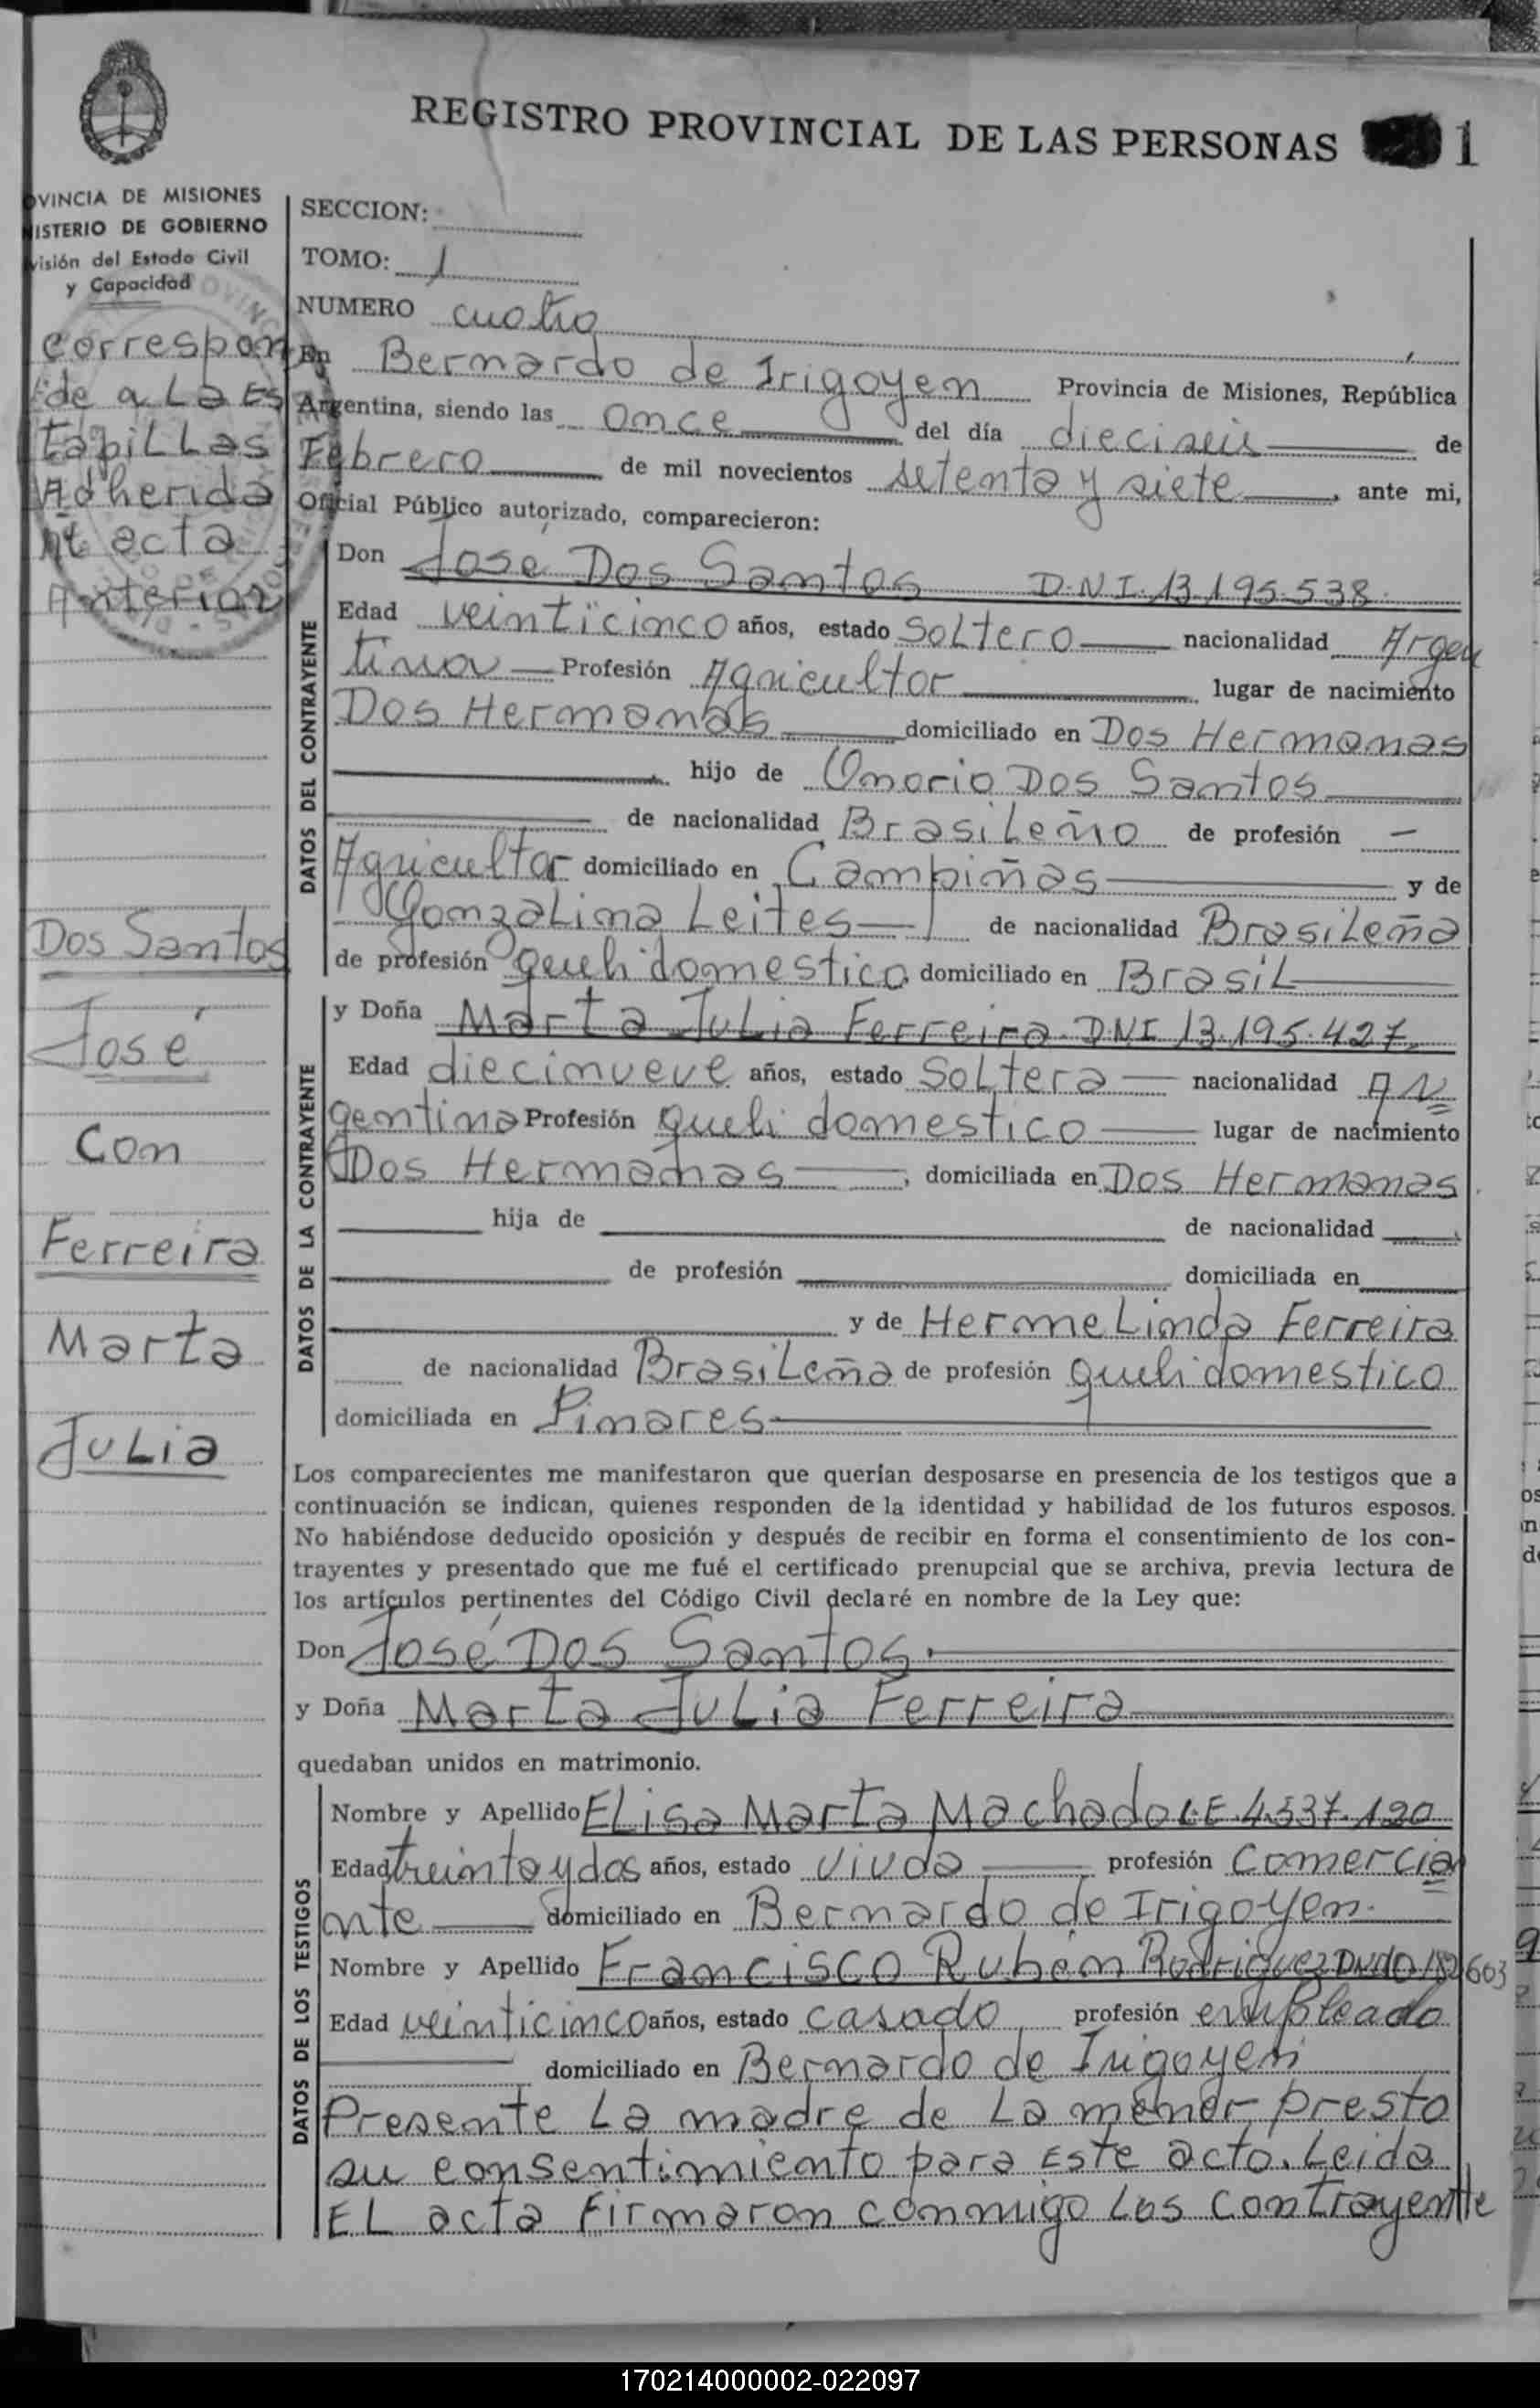 REGISTRO PROVINCIAL DE LAS PERSONAS 1
OVINCIA DE MISIONES
NISTERIO DE GOBIERNO
visión del Estado Civil
y Capacidad
Correspon
de a La Es
tapiLLas
Adherida
acta
Anterior
Dos Santos
José
Con
Ferreira
Marta
JuLia
SECCION:
TOMO: 1
NUMERO cuatro
En Bernardo de Irigoyen Provincia de Misiones, República
Argentina, siendo las once del día dieciseis de
Febrero de mil novecientos setenta y siete, ante mi,
Oficial Público autorizado, comparecieron:
DATOS DEL CONTRAYENTE
Don José Dos Santos D.N.I. 13.195.538
Edad veinticinco años, estado SoLtero nacionalidad Argen
tina Profesión Agricultor lugar de nacimiento
Dos Hermanas domiciliado en Dos Hermanas
hijo de Onorio Dos Santos
de nacionalidad BrasiLeño de profesión
Agricultor domiciliado en Campiñas y de
GonzaLina Leites de nacionalidad BrasiLeña
de profesión domestico domiciliado en BrasiL
DATOS DE LA CONTRAYENTE
y Doña Marta JuLia Ferreira D.N.I 13.195.427
Edad diecinueve años, estado SoLtera nacionalidad Ar
gentina Profesión domestico lugar de nacimiento
Dos Hermanas, domiciliada en Dos Hermanas
hija de de nacionalidad
de profesión domiciliada en
y de HermeLinda Ferreira
de nacionalidad BrasiLeña de profesión domestico
domiciliada en Pinares
Los comparecientes me manifestaron que querían desposarse en presencia de los testigos que a
continuación se indican, quienes responden de la identidad y habilidad de los futuros esposos.
No habiéndose deducido oposición y después de recibir en forma el consentimiento de los con-
trayentes y presentado que me fué el certificado prenupcial que se archiva, previa lectura de
los artículos pertinentes del Código Civil declaré en nombre de la Ley que:
Don José Dos Santos.
y Doña Marta JuLia Ferreira
quedaban unidos en matrimonio.
DATOS DE LOS TESTIGOS
Nombre y Apellido ELisa Marta Machado L.E 4.537.120
Edad treinta y dos años, estado viuda profesión Comercia
nte domiciliado en Bernardo de Irigoyen.
Nombre y Apellido Francisco Rubén Rodriguez
Edad veinticinco años, estado casado profesión empleado
domiciliado en Bernardo de Irigoyen
Presente La madre de La menor presto
su consentimiento para Este acto. Leida
EL acta Firmaron conmigo Los contrayente
170214000002-022097